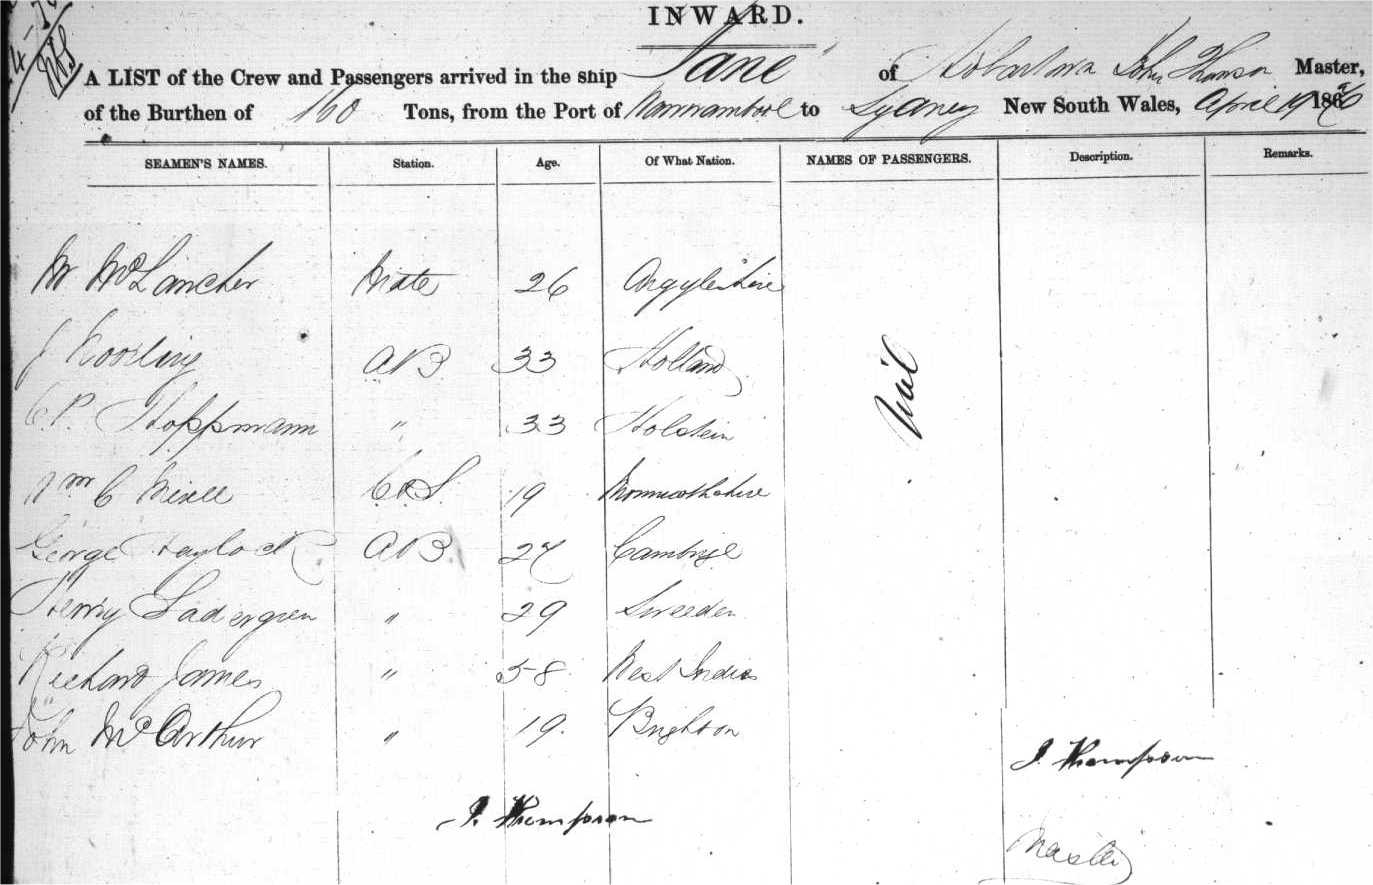 INWARD.
A LIST of the Crew and Passengers arrived in the ship "Jane" of Hobartown John Thomson Master,
of the Burthen of 160 Tons, from the Port of Warrnambool to Sydney New South Wales, April 19 186
SEAMEN'S NAMES. Station. Age. Of What Nation. NAMES OF PASSENGERS. Description. Remarks.
Mate 26 Argyleshire
J AB 33 Holland
C.P. Hoppmann " 33 Holstein
Nil
Wm C 19 Monmouthshire
George Haylock AB 27
Henry " 29 Sweeden
Richard James " 58 West Indies
John McArthur " 19. Brighton
J. Thompson
J. Thompson
Master